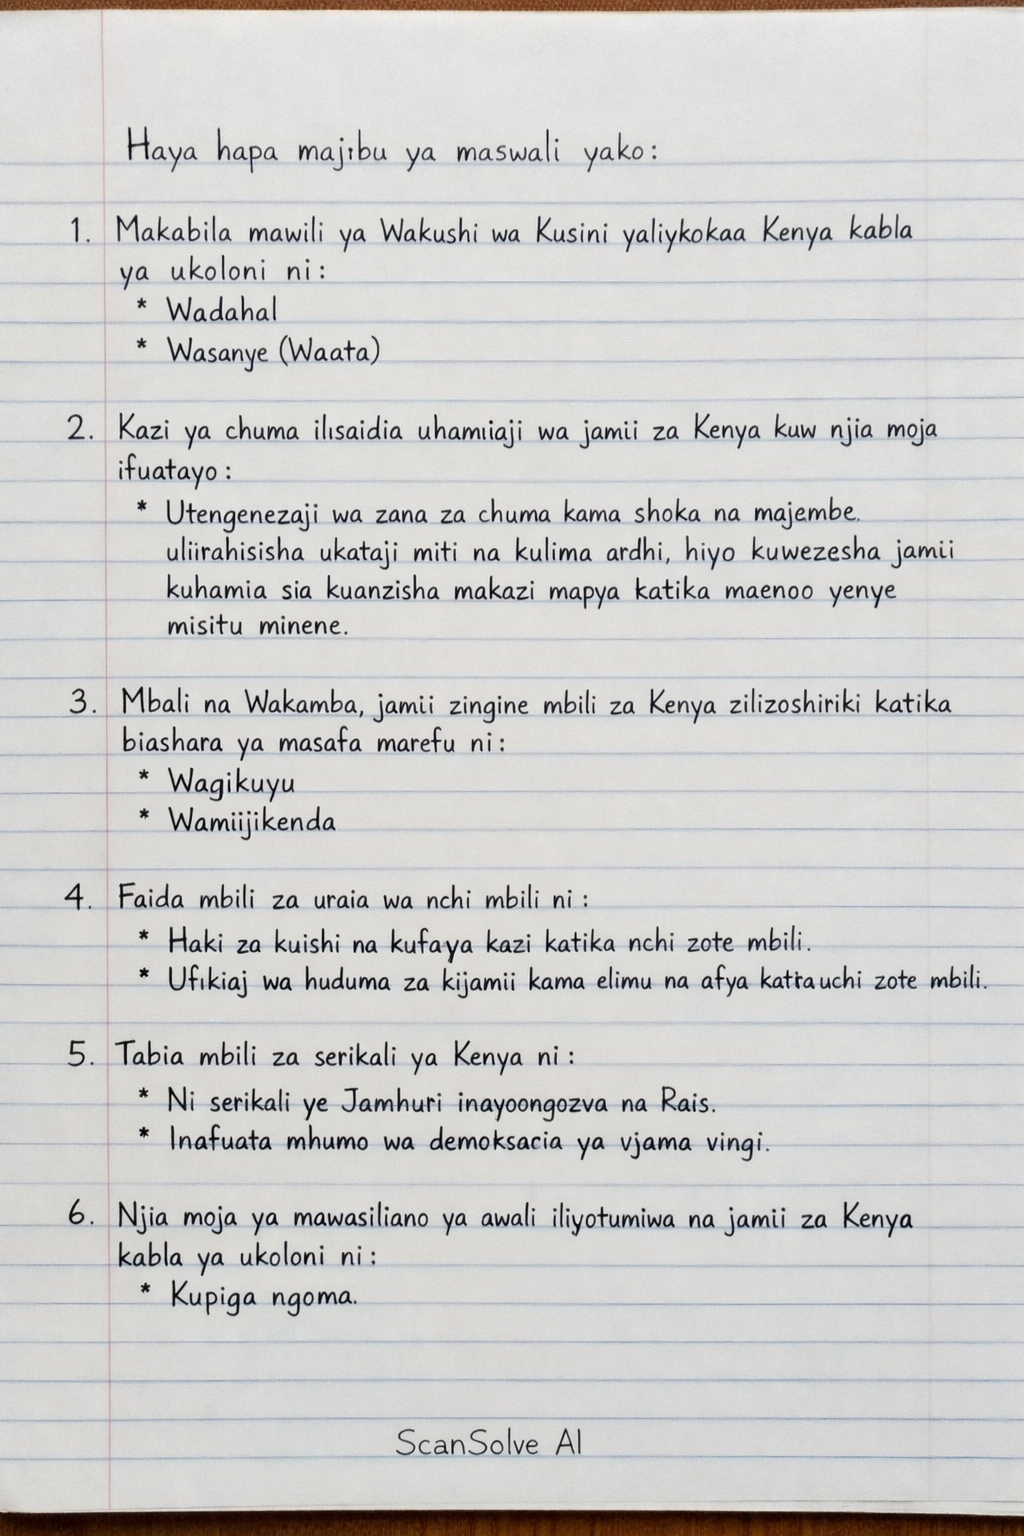 Haya hapa majibu ya maswali yako:
1. Makabila mawili ya Wakushi wa Kusini yaliykokaa Kenya kabla
ya ukoloni ni:
* Wadahal
* Wasanye (Waata)
2. Kazi ya chuma ilisaidia uhamiiaji wa jamii za Kenya kuw njia moja
ifuatayo:
* Utengenezaji wa zana za chuma kama shoka na majembe.
uliirahisisha ukataji miti na kulima ardhi, hiyo kuwezesha jamii
kuhamia sia kuanzisha makazi mapya katika maenoo yenye
misitu minene.
3. Mbali na Wakamba, jamii zingine mbili za Kenya zilizoshiriki katika
biashara ya masafa marefu ni:
* Wagikuyu
* Wamiijikenda
4. Faida mbili za uraia wa nchi mbili ni:
* Haki za kuishi na kufaya kazi katika nchi zote mbili.
* Ufikiaj wa huduma za kijamii kama elimu na afya katrauchi zote mbili.
5. Tabia mbili za serikali ya Kenya ni:
* Ni serikali ye Jamhuri inayoongozva na Rais.
* Inafuata mhumo wa demoksacia ya vjama vingi.
6. Njia moja ya mawasiliano ya awali iliyotumiwa na jamii za Kenya
kabla ya ukoloni ni:
* Kupiga ngoma.
ScanSolve AI